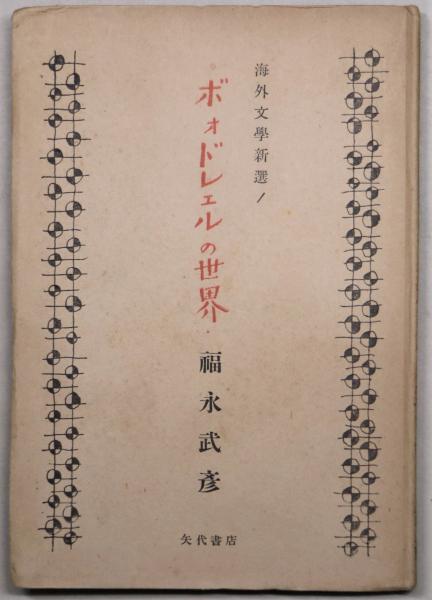 海外文學新選1
ボォドレェルの世界・
福永武彦
矢代書店